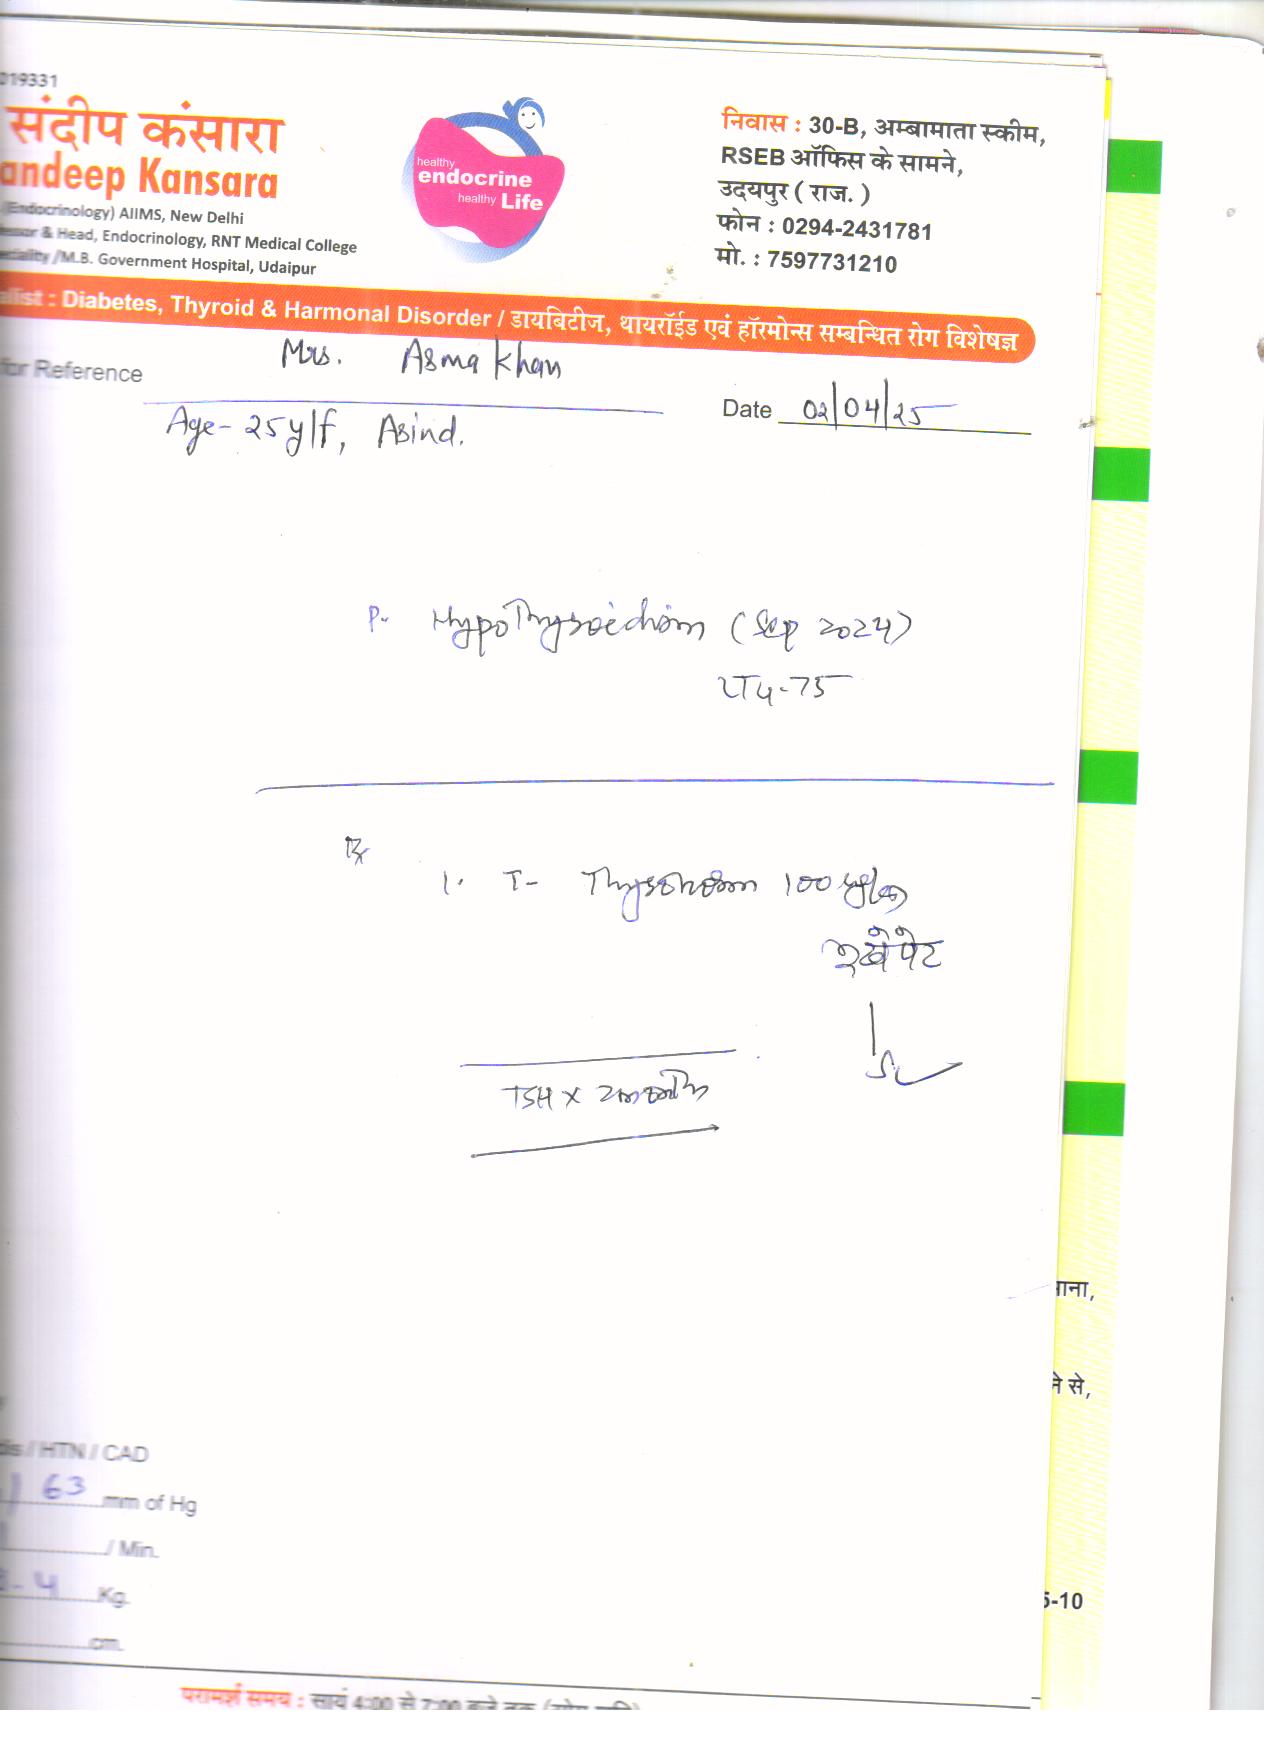 019331
संदीप कंसारा
andeep Kansara
(Endocrinology) AIIMS, New Delhi
essor & Head, Endocrinology, RNT Medical College
eciality /M.B. Government Hospital, Udaipur
healthy
endocrine
healthy Life
निवास : 30-B, अम्बामाता स्कीम,
RSEB ऑफिस के सामने,
उदयपुर ( राज. )
फोन : 0294-2431781
मो. : 7597731210
alist : Diabetes, Thyroid & Harmonal Disorder / डायबिटीज, थायरॉईड एवं हॉरमोन्स सम्बन्धित रोग विशेषज्ञ
for Reference
Mrs. Asma Khan
Date 02/04/25
Age- 25y/f, Asind.
P- Hypothyroidism (Sep 2024)
LT4-75
Rx
1. T- 100
पेट
TSH x 2 month
ाना,
ने से,
dis / HTN / CAD
/ 63 mm of Hg
/ Min.
-4 Kg.
cm.
5-10
परामर्श समय : सायं 4:00 से 7:00 बजे तक